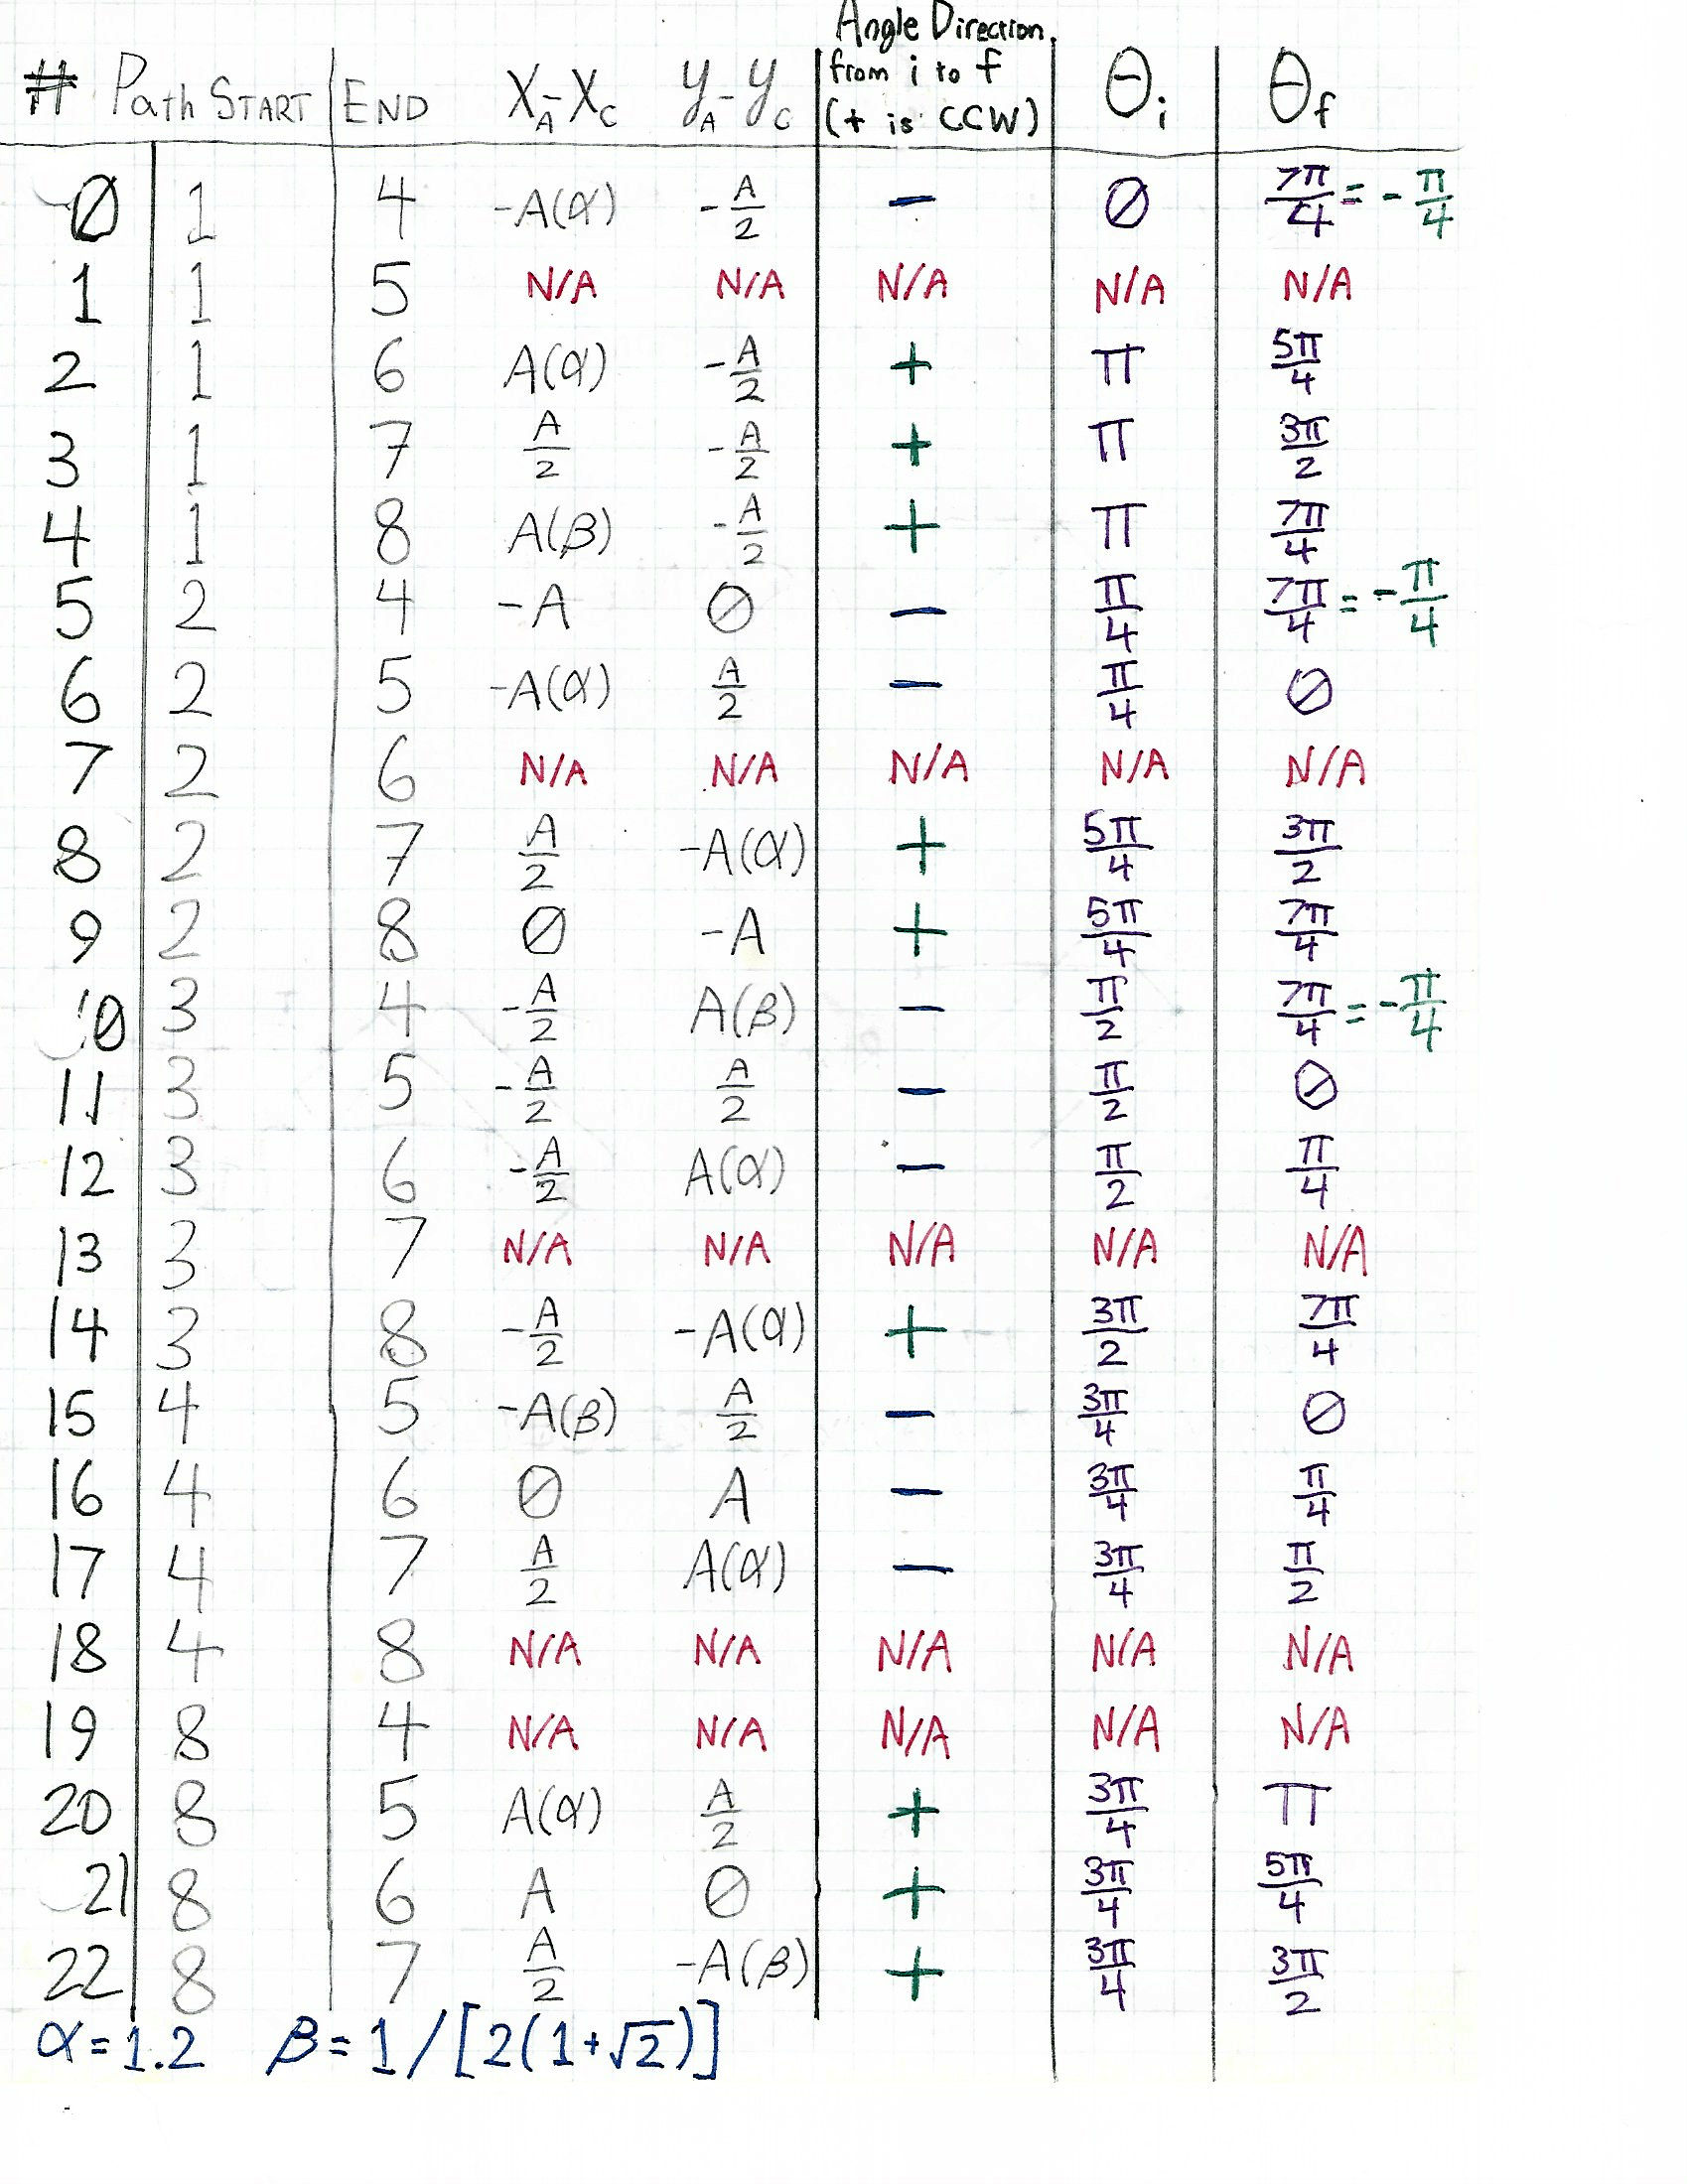 Angle Direction.
# Path START END X_A-X_C y_A-y_C from i to f (+ is CCW) θ_i θ_f
0 1 4 -A(α) -A/2 - 0 7π/4 = -π/4
1 1 5 N/A N/A N/A N/A N/A
2 1 6 A(α) -A/2 + π 5π/4
3 1 7 A/2 -A/2 + π 3π/2
4 1 8 A(β) -A/2 + π 7π/4
5 2 4 -A 0 - π/4 7π/4 = -π/4
6 2 5 -A(α) A/2 - π/4 0
7 2 6 N/A N/A N/A N/A N/A
8 2 7 A/2 -A(α) + 5π/4 3π/2
9 2 8 0 -A + 5π/4 7π/4
10 3 4 -A/2 A(β) - π/2 7π/4 = -π/4
11 3 5 -A/2 A/2 - π/2 0
12 3 6 -A/2 A(α) - π/2 π/4
13 3 7 N/A N/A N/A N/A N/A
14 3 8 -A/2 -A(α) + 3π/2 7π/4
15 4 5 -A(β) A/2 - 3π/4 0
16 4 6 0 A - 3π/4 π/4
17 4 7 A/2 A(α) - 3π/4 π/2
18 4 8 N/A N/A N/A N/A N/A
19 8 4 N/A N/A N/A N/A N/A
20 8 5 A(α) A/2 + 3π/4 π
21 8 6 A 0 + 3π/4 5π/4
22 8 7 A/2 -A(β) + 3π/4 3π/2
α=1.2 β=1/[2(1+√2)]